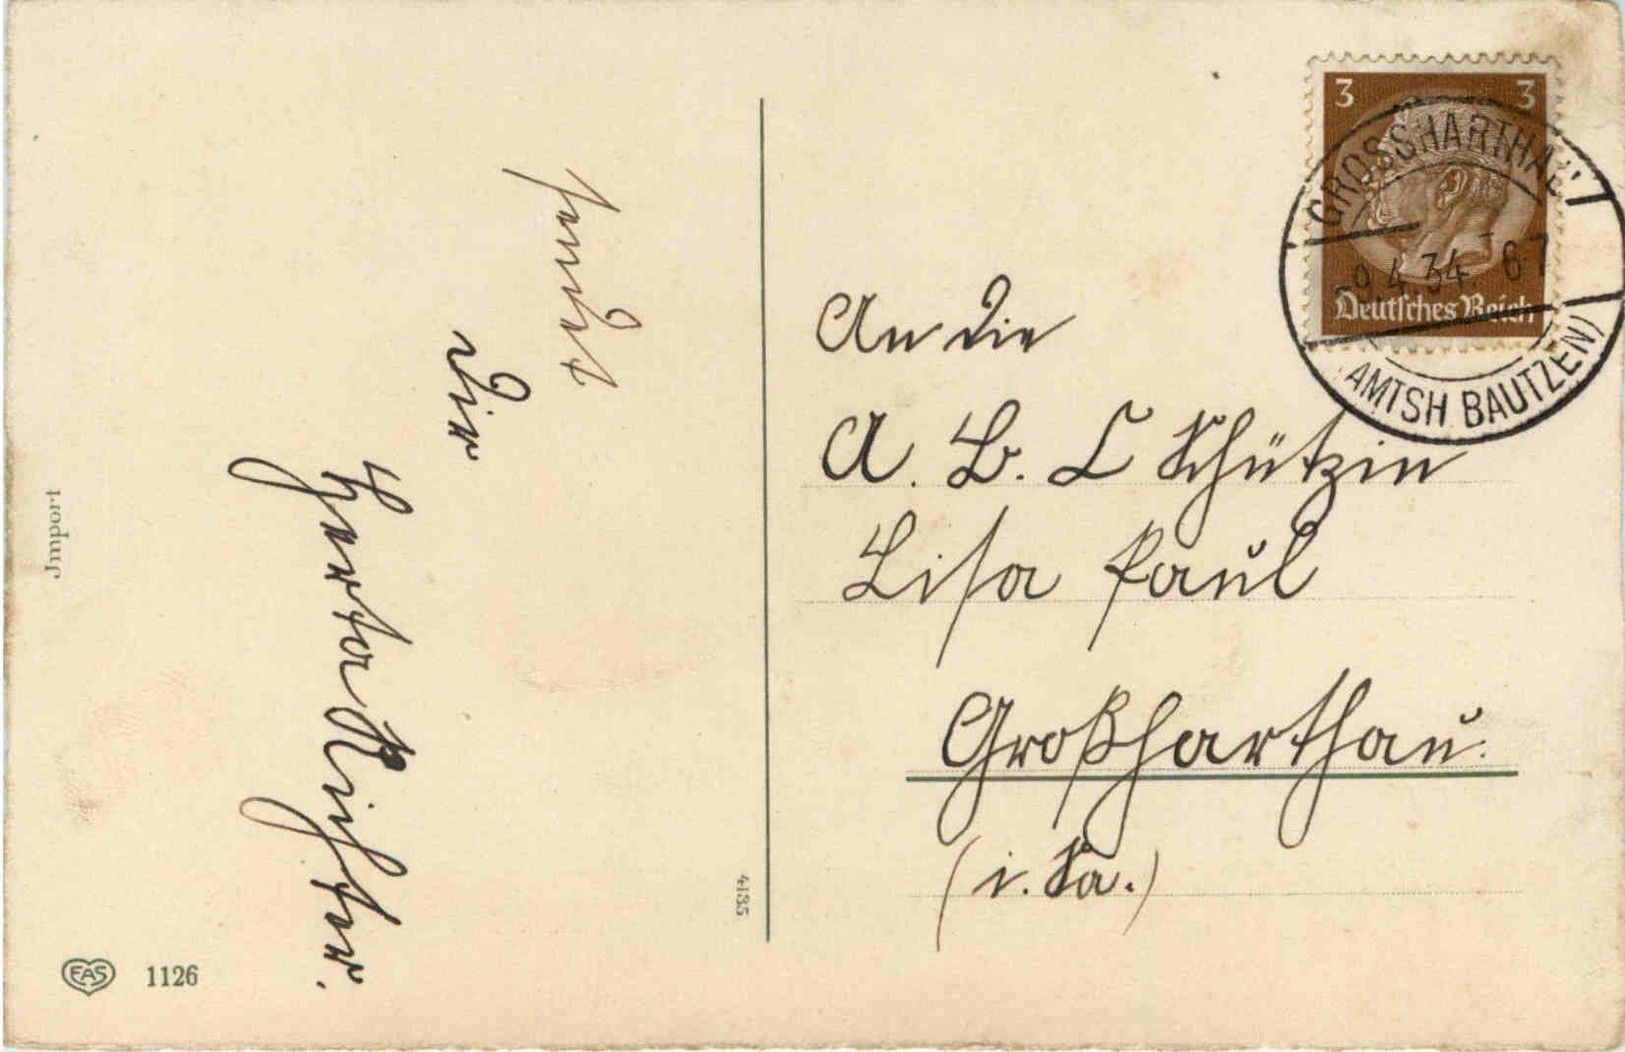 sendet
dir
Herta Richter.
Import
EAS 1126
4135
An die
A. B. C Schützin
Lisa Paul
Großharthau.
(i. Sa.)
3 3
Deutsches Reich
GROSSHARTHAU
-9.4.34 6-7
(AMTSH BAUTZEN)